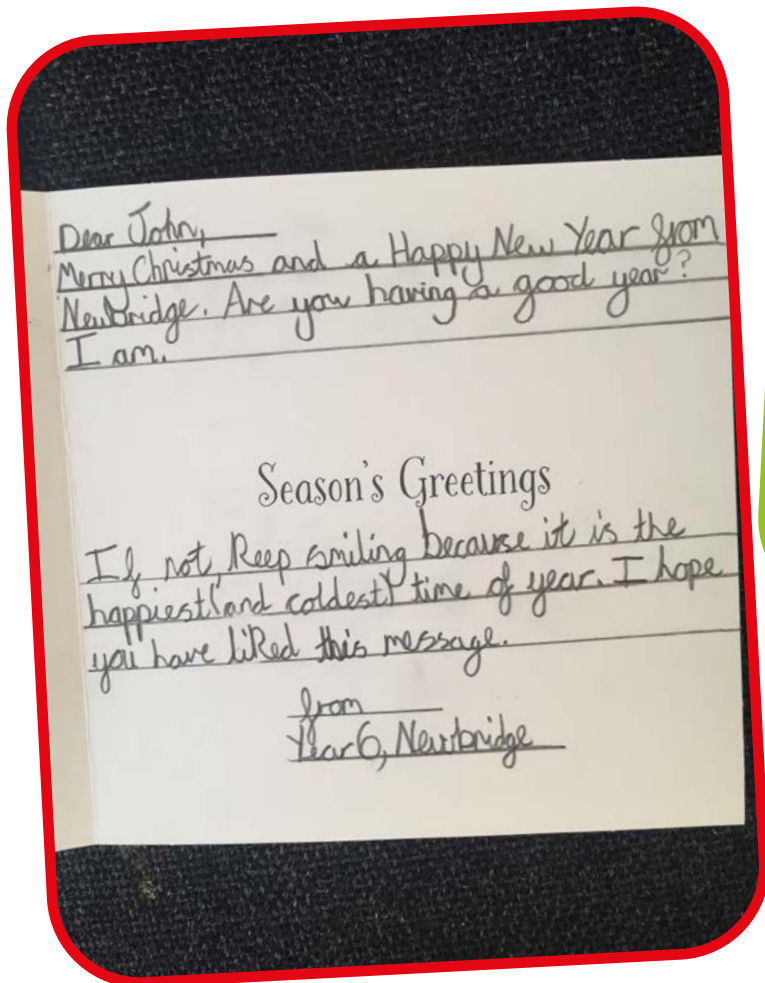 Dear John,
Merry Christmas and a Happy New Year from
Newbridge. Are you having a good year?
I am.
Season's Greetings
If not, keep smiling because it is the
happiest (and coldest) time of year. I hope
you have liked this message.
from
Year 6, Newbridge